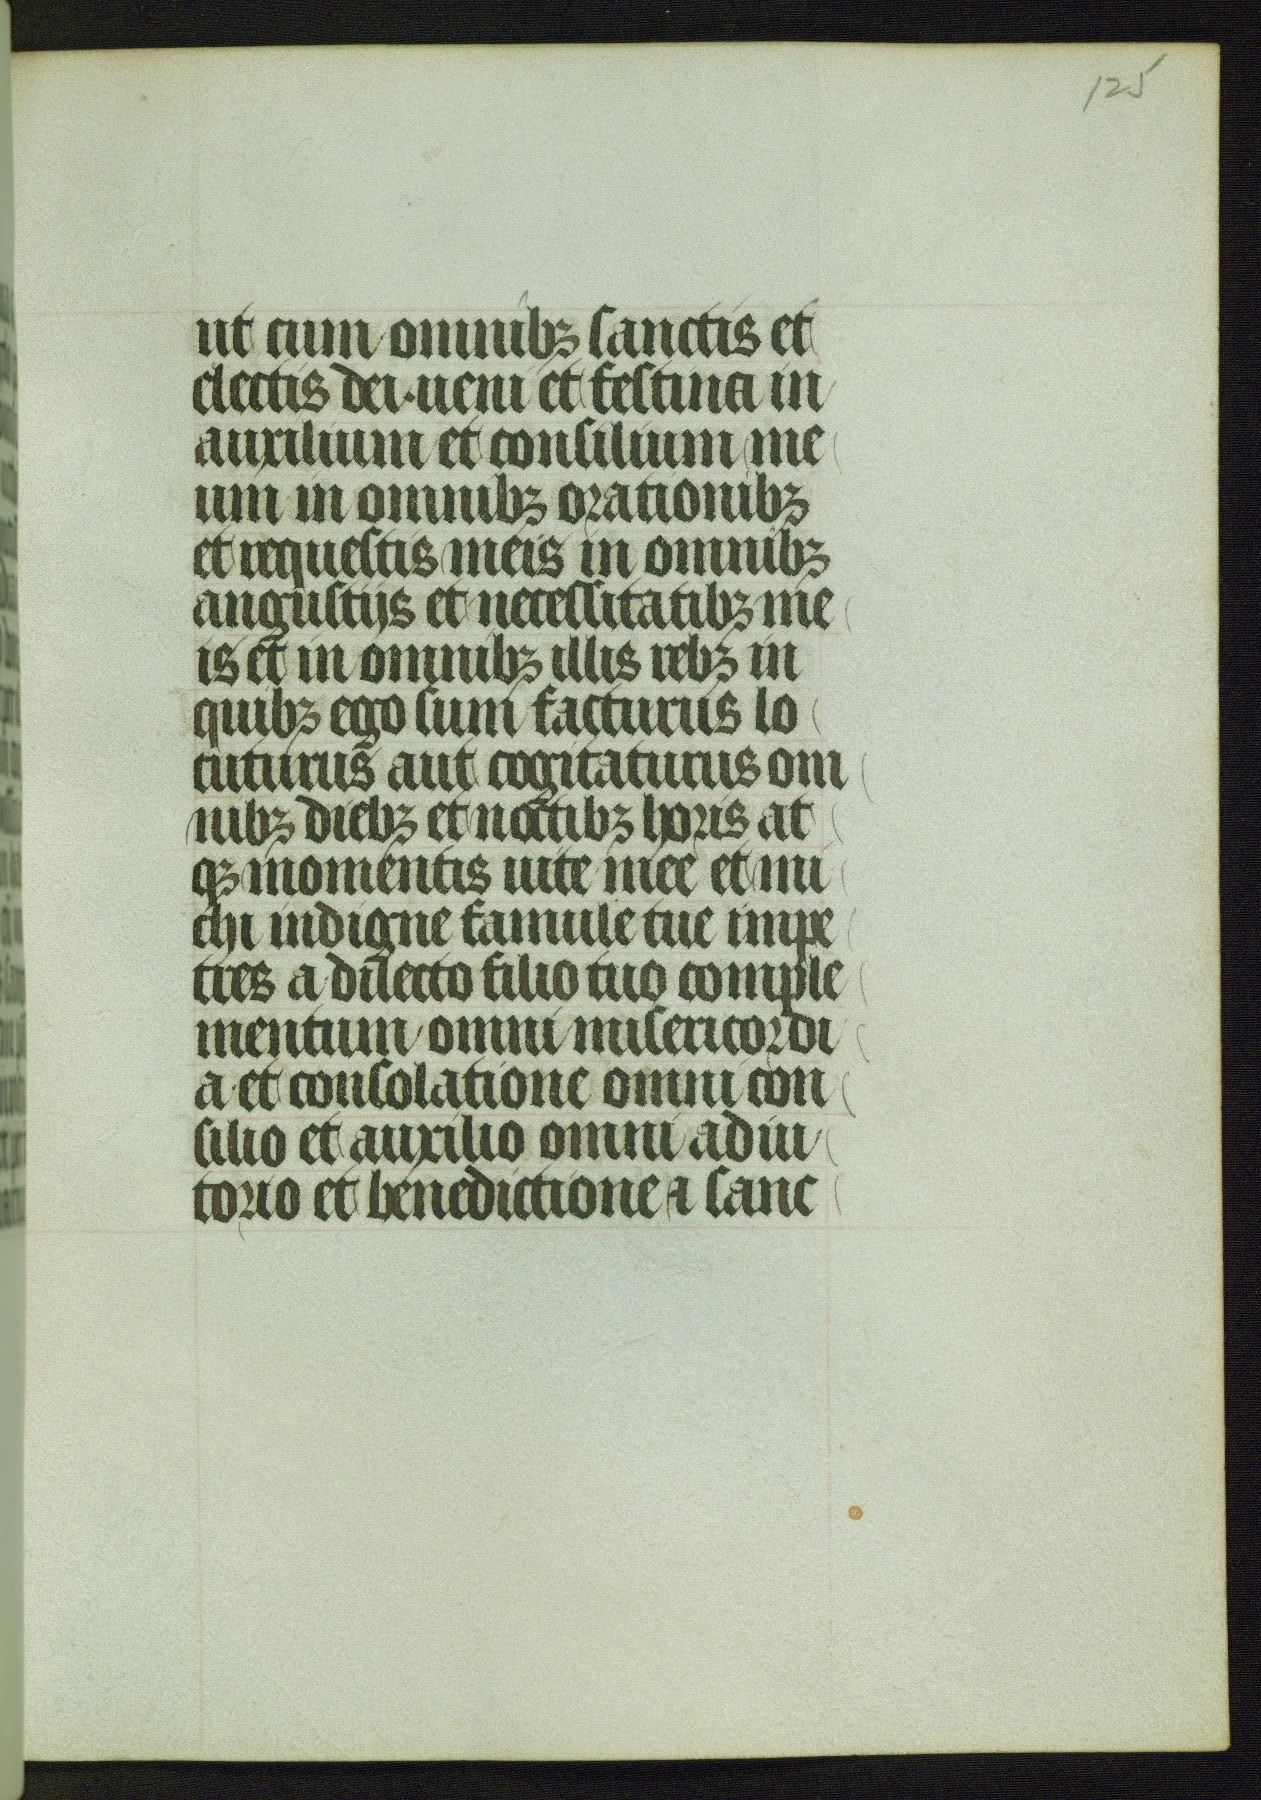 125
ut cum omnibꝫ sanctis et
electis dei·ueni et festina in
auxilium et consilium me
um in omnibꝫ orationibꝫ
et requestis meis in omnibꝫ
angustijs et necessitatibꝫ me
is et in omnibꝫ illis rebꝫ in
quibꝫ ego sum facturus lo
cuturus aut cogitaturus om
nibꝫ diebꝫ et noctibꝫ horis at
qꝫ momentis uite mee et mi
chi indigne famule tue impe
tres a dilecto filio tuo comple
mentum omni misericordi
a et consolatione omni con
silio et auxilio omni adiu
torio et benedictione a sanc